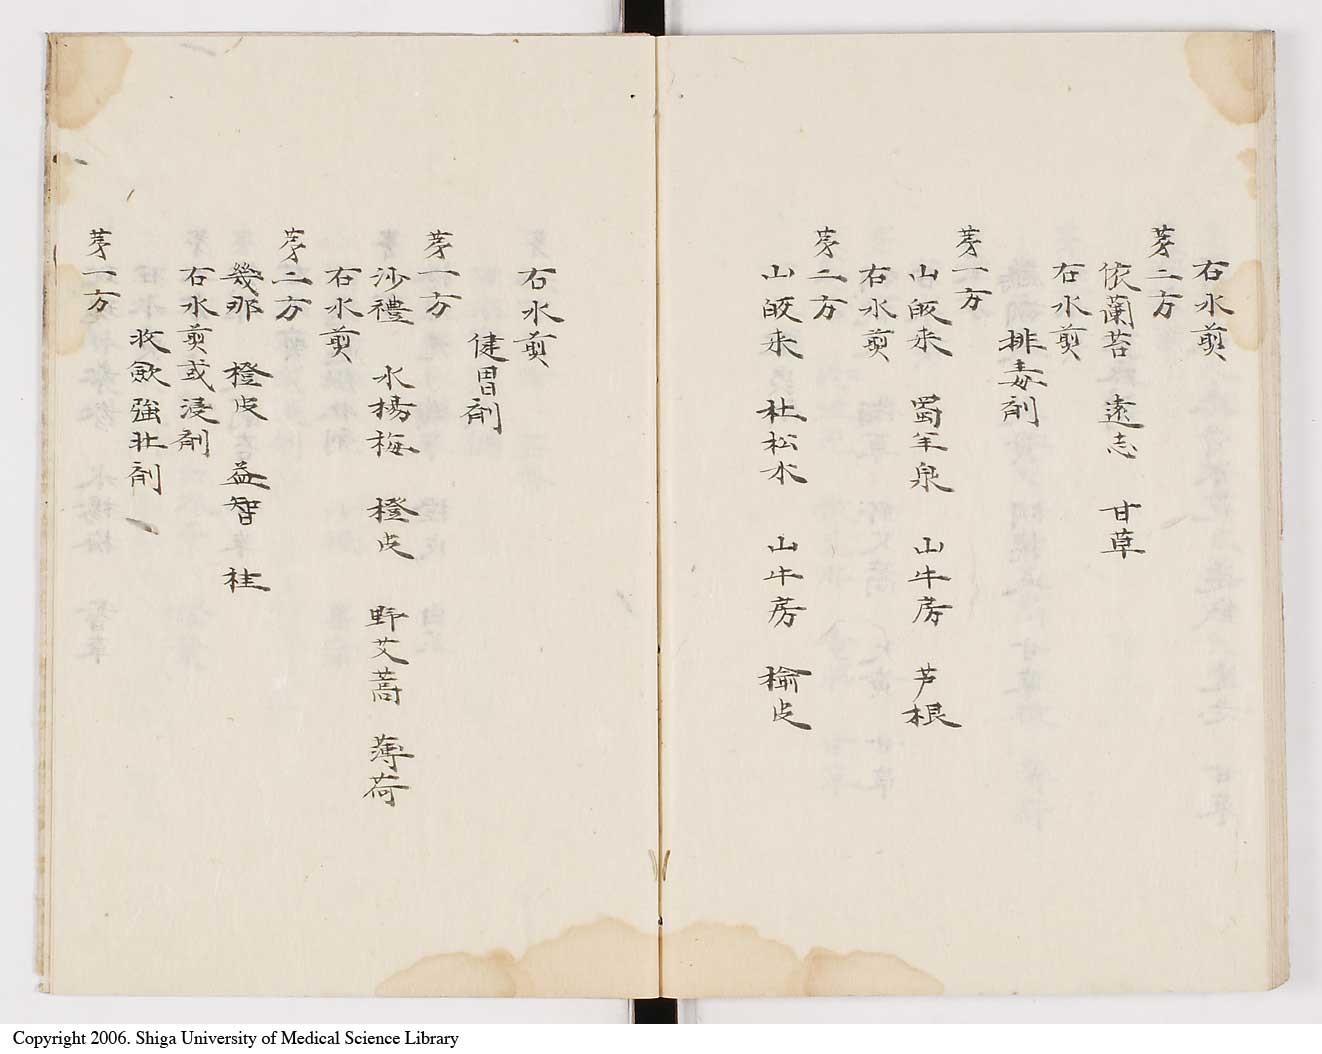 右水煎
第二方
依蘭苔 遠志 甘草
右水煎
排毒剤
第一方
山皈来 蜀羊泉 山牛蒡 芦根
右水煎
第二方
山皈来 杜松木 山牛蒡 楡皮
右水煎
健胃剤
第一方
沙禮 水楊梅 橙皮 野艾蒿 薄荷
右水煎
第二方
幾那 橙皮 益智 桂
右水煎或浸剤
收歛強壯剤
第一方
Copyright 2006. Shiga University of Medical Science Library